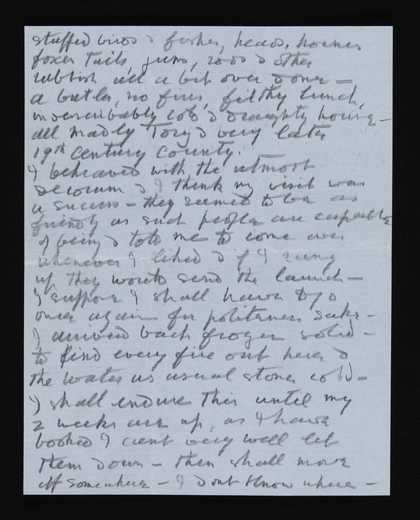 stuffed birds & fishes, heads, hornes
foxes tails, guns, rods & other
rubbish all a bit over done –
a butler, no fires, filthy lunch,
indescribably cold & draughty house –
all madly Tory & very late
19th Century County.
I behaved with the utmost
decorum & I think my visit was
a success – they seemed to be as
friendly as such people are capable
of being & told me to come over
whenever I liked & if I rang
up they would send the launch –
I suppose I shall have to go
once again for politeness sake –
I arrived back frozen solid –
to find every fire out here &
the water as usual stone cold –
I shall endure this until my
2 weeks are up, as I have
booked I can't very well let
them down – then shall move
off somewhere – I dont know where –